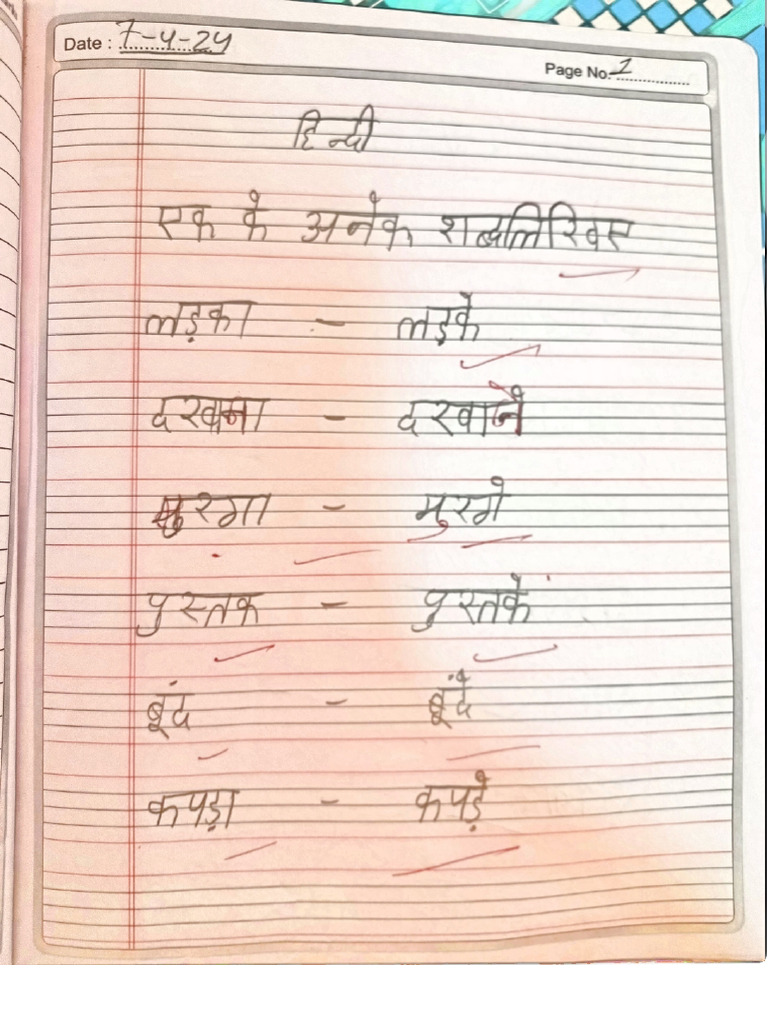 Date : 7-4-24
Page No. 1
हिन्दी
एक के अनेक शब्द लिखिए
लड़का - लड़के
दरवाजा - दरवाजे
मुरगा - मुरगे
पुस्तक - पुस्तकें
बूंद - बूंदे
कपड़ा - कपड़े